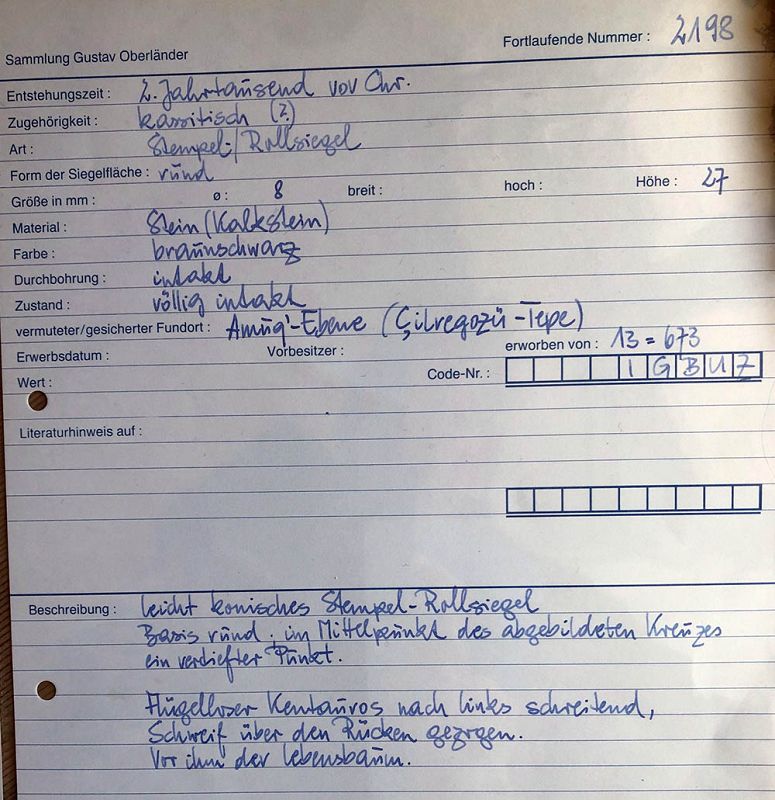 Fortlaufende Nummer : 2198
Sammlung Gustav Oberländer
Entstehungszeit : 2. Jahrtausend vor Chr.
Zugehörigkeit : kassitisch (?)
Art : Stempel-/Rollsiegel
Form der Siegelfläche : rund
Größe in mm : ø : 8 breit : hoch : Höhe : 27
Material : Stein (Kalkstein)
Farbe : braunschwarz
Durchbohrung : intakt
Zustand : völlig intakt
vermuteter/gesicherter Fundort : Amuq'-Ebene (Çilregozü-Tepe)
Erwerbsdatum : Vorbesitzer : erworben von : 13 = 673
Wert : Code-Nr. : I G B U Z
Literaturhinweis auf :
Beschreibung : leicht konisches Stempel-Rollsiegel
Basis rund, im Mittelpunkt des abgebildeten Kreuzes
ein vertiefter Punkt.
Flügelloser Kentauros nach links schreitend,
Schweif über den Rücken gezogen.
Vor ihm der Lebensbaum.